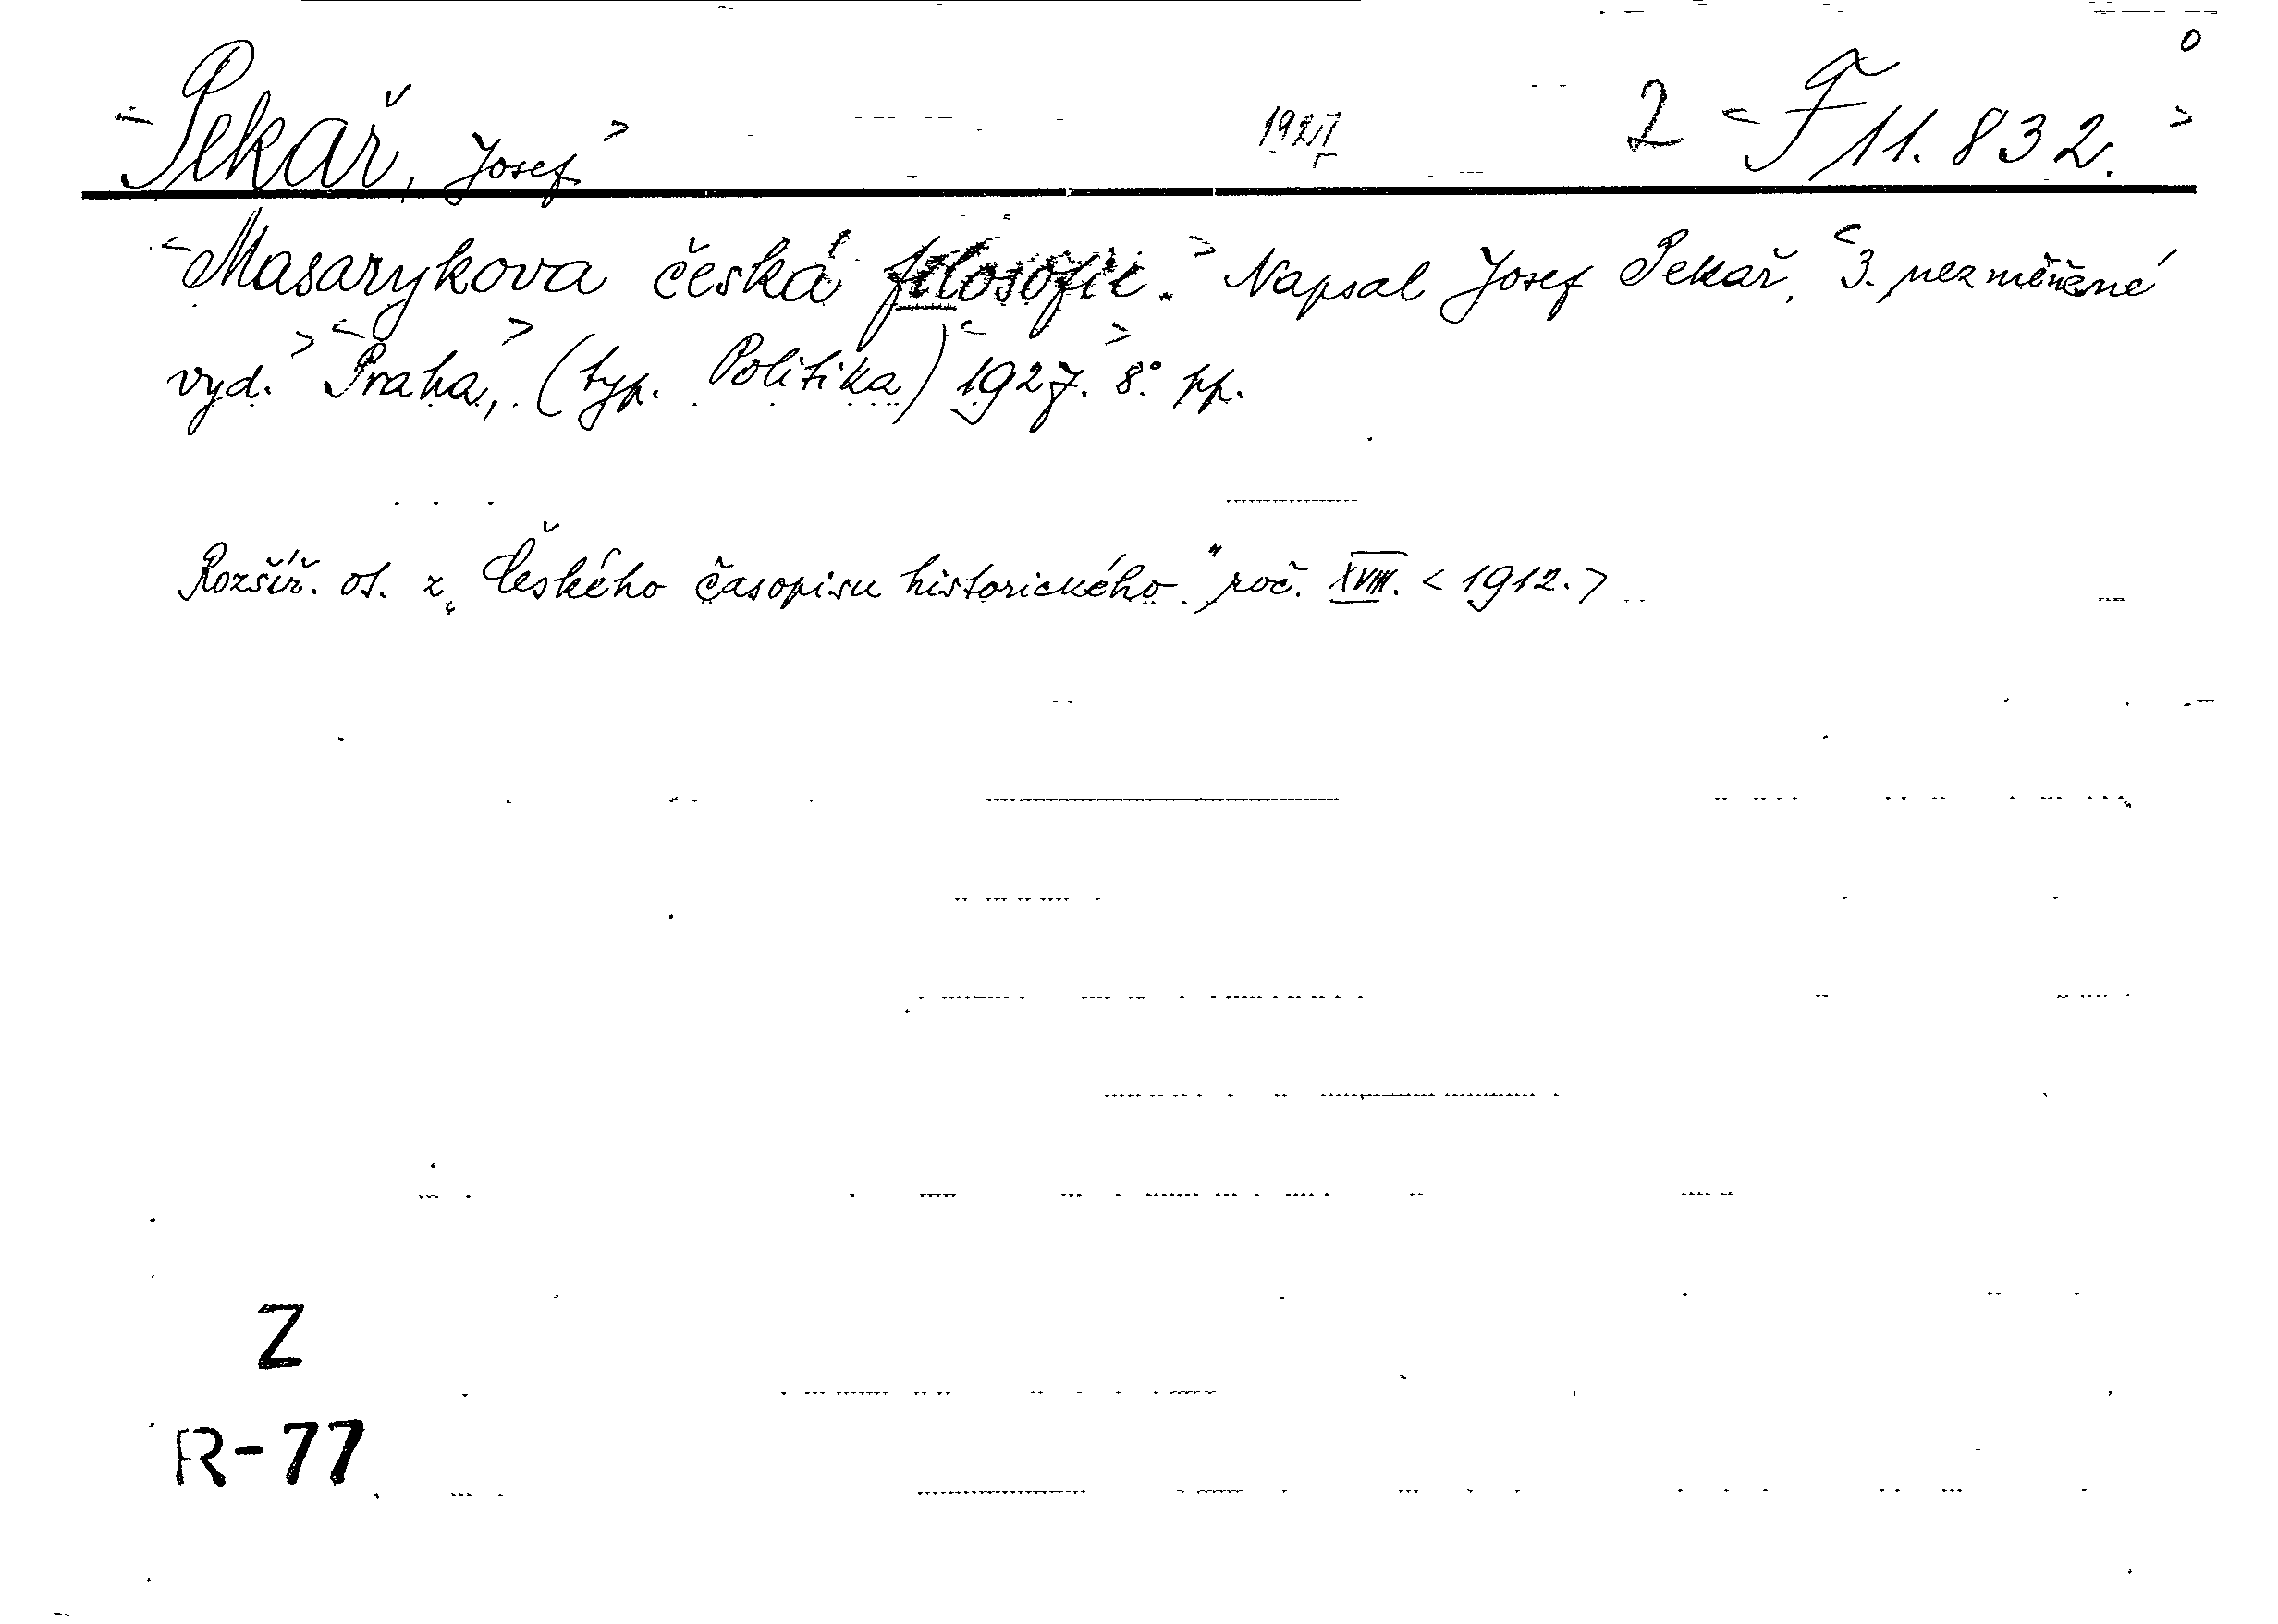 <Pekař, Josef> 1927 2 <F 11.832.>
<Masarykova česká filosofie.> Napsal Josef Pekař. <3. nezměněné
vyd.> <Praha,> (typ. Politika) <1927.> 8° pp.
Rozšíř. ot. z „Českého časopisu historického" roč. XVIII. <1912.>
Z
R-77